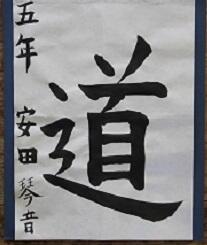 道
五年 安田琴音